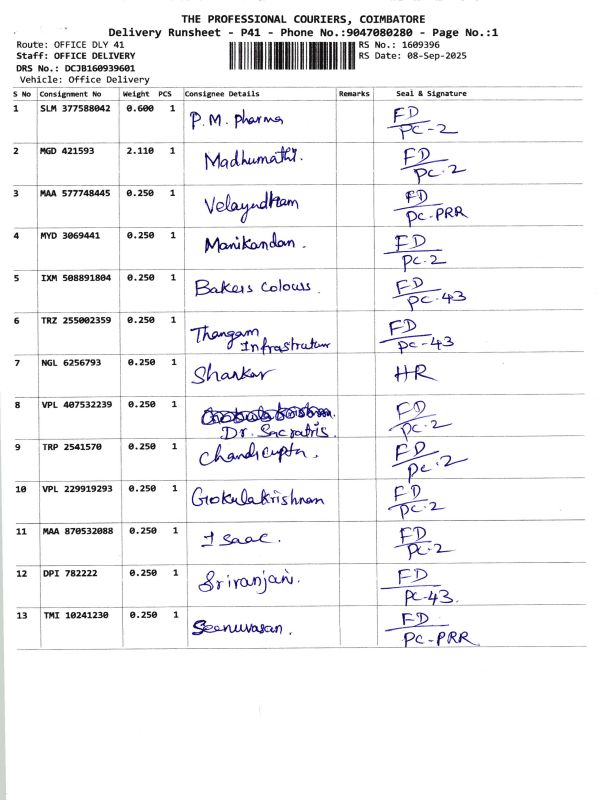 THE PROFESSIONAL COURIERS, COIMBATORE
Delivery Runsheet - P41 - Phone No.:9047080280 - Page No.:1
Route: OFFICE DLY 41 RS No.: 1609396
Staff: OFFICE DELIVERY RS Date: 08-Sep-2025
DRS No.: DCJB160939601
Vehicle: Office Delivery
S No Consignment No Weight PCS Consignee Details Remarks Seal & Signature
1 SLM 377588042 0.600 1 P.M. Pharma FD
PC-2
2 MGD 421593 2.110 1 Madhumathi. FD
PC.2
3 MAA 577748445 0.250 1 Velayudham FD
PC-PRR
4 MYD 3069441 0.250 1 Manikandan. FD
PC.2
5 IXM 508891804 0.250 1 Bakers Colours. FD
PC.43
6 TRZ 255002359 0.250 1 Thangam FD
Infrastratum PC-43
7 NGL 6256793 0.250 1 Shankar HR
8 VPL 407532239 0.250 1 FD
Dr. Socratris. PC.2
9 TRP 2541570 0.250 1 Chandigupta. FD
PC.2
10 VPL 229919293 0.250 1 Gokulakrishnan FD
PC.2
11 MAA 870532088 0.250 1 Isaac. FD
PC.2
12 DPI 782222 0.250 1 Sriranjani. FD
PC-43.
13 TMI 10241230 0.250 1 Seenuvasan. FD
PC-PRR